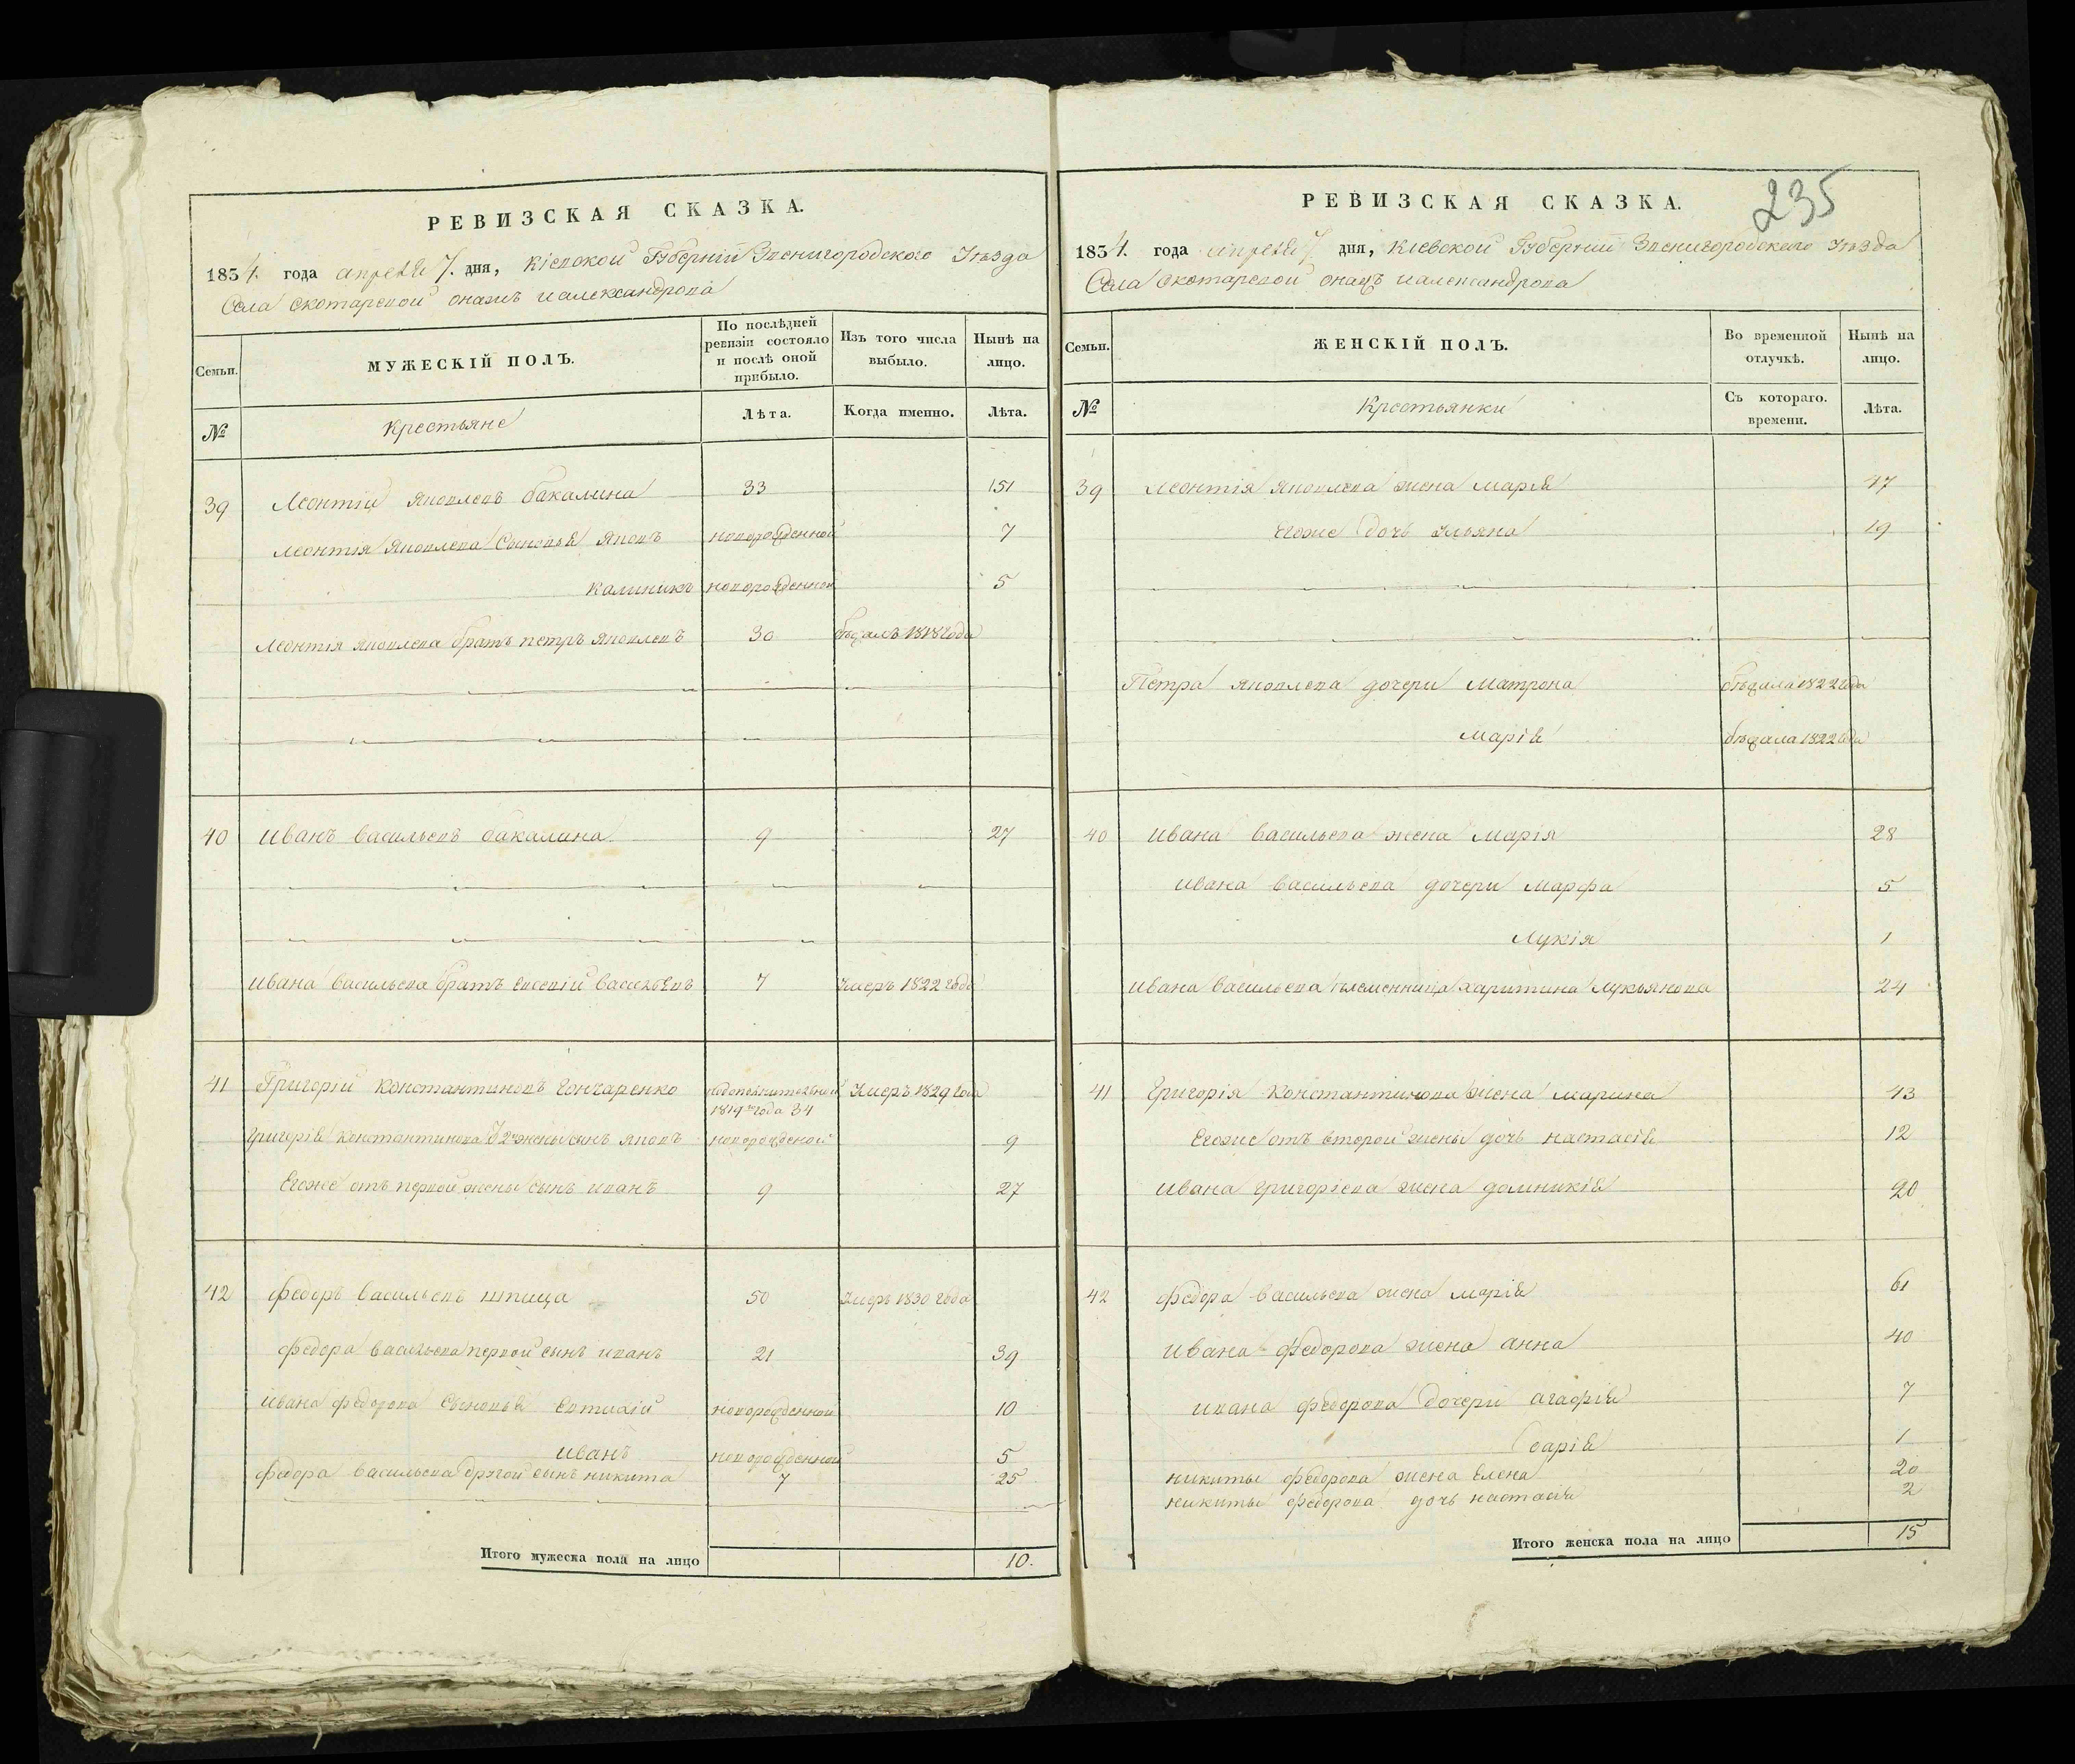 РЕВИЗСКАЯ СКАЗКА.
1834. года апреля 7. дня, Кіевской Губерніи Звенигородского Уѣзда
Села Скотаревой онажъ и александрова
Семьи.
МУЖЕСКІЙ ПОЛЪ.
По послѣдней ревизіи состояло и послѣ оной прибыло.
Изъ того числа выбыло.
Нынѣ на лицо.
№
Крестьяне
Лѣта.
Когда именно.
Лѣта.
39 Леонтій Яковлевъ бакалина 33 151
Леонтія Яковлева Сыновья Яковъ новорожденной 7
Калиникъ новорожденной 5
Леонтія Яковлева братъ петръ Яковлевъ 30 бѣжалъ 1818 года
40 Иванъ Васильевъ бакалина 9 27
Ивана Васильева братъ евсевій Васильевъ 7 Умеръ 1822 года
41 Григорій Константиновъ Гончаренко 1819 года 34 Умеръ 1829 года
Григорія Константинова 2 жены сынъ Яковъ новорожденной 9
Егоже отъ первой жены сынъ иванъ 9 27
42 Федоръ Васильевъ шпица 50 Умеръ 1830 года
Федора Васильева первой сынъ иванъ 21 39
Ивана Федорова Сыновья Евтихій новорожденной 10
Иванъ новорожденной 5
Федора Васильева другой сынъ никита 7 25
Итого мужеска пола на лицо 10.
235
РЕВИЗСКАЯ СКАЗКА.
1834. года апреля 7. дня, Кіевской Губерніи Звенигородского Уѣзда
Села Скотаревой онажъ и александрова
Семьи.
ЖЕНСКІЙ ПОЛЪ.
Во временной отлучкѣ.
Нынѣ на лицо.
№
Крестьянки
Съ котораго. времени.
Лѣта.
39 Леонтія Яковлева жена марія 47
Егоже дочь ульяна 19
Петра Яковлева дочери Матрона бѣжала 1822 года
Марія бѣжала 1822 года
40 Ивана Васильева жена Марія 28
Ивана Васильева дочери Марфа 5
Лукія 1
Ивана Васильева племенница харитина Лукьянова 24
41 Григорія Константинова жена марина 43
Егоже отъ второй жены дочь настасія 12
Ивана Григоріева жена домникія 20
42 Федора Васильева жена марія 61
Ивана Федорова жена анна 40
Ивана Федорова дочери агафія 7
Дарія 1
никиты Федорова жена Елена 20
никиты Федорова дочь настасія 2
Итого женска пола на лицо 15